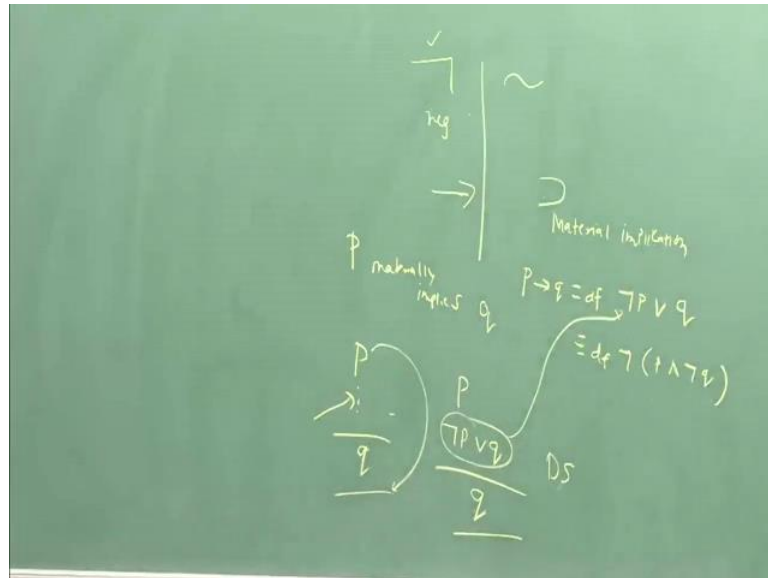 ✓
¬ ~
neg
→ ⊃
Material implication
P materially implies q
P → q ≡ df ¬P ∨ q
≡ df ¬(P ∧ ¬q)
P
⋮
q
P
¬P ∨ q
DS
q